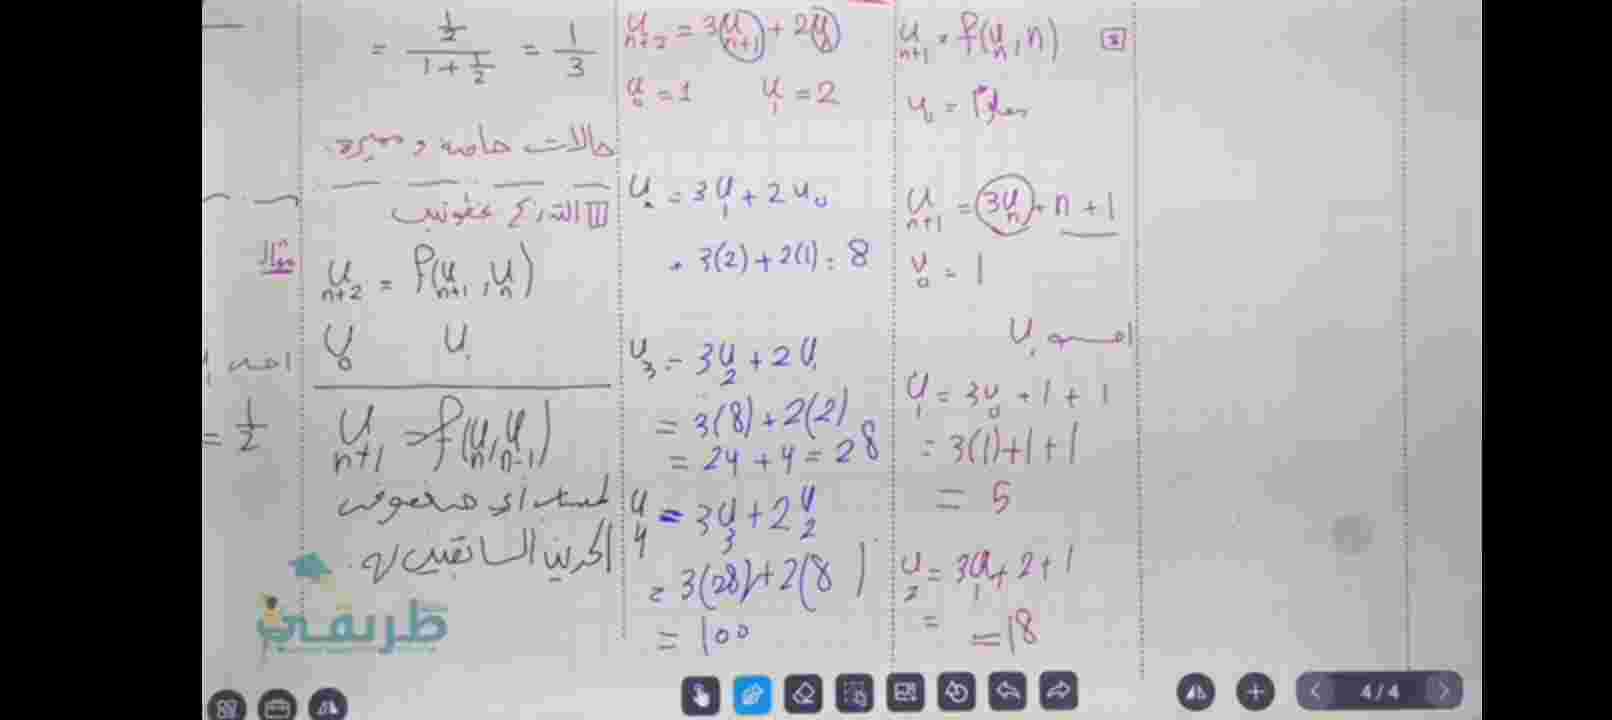 u_{n+1} = f(u_n, n) [2]
u_0 =
u_{n+1} = 3u_n + n + 1
u_0 = 1
احسب u_1
u_1 = 3u_0 + 1 + 1
= 3(1)+1+1
= 5
u_2 = 3u_1 + 2 + 1
=
= 18
u_{n+2} = 3u_{n+1} + 2u_n
u_0 = 1 u_1 = 2
= 3u_1 + 2u_0
3(2) + 2(1) = 8
u_3 = 3u_2 + 2u_1
= 3(8) + 2(2)
= 24 + 4 = 28
u_4 = 3u_3 + 2u_2
= 3(28) + 2(8)
= 100
= \frac{\frac{1}{2}}{1+\frac{1}{2}} = \frac{1}{3}
حالات خاصة و مميزة
u_{n+2} = f(u_{n+1}, u_n)
u_0 u_1
u_{n+1} = f(u_n, u_{n-1})
الحدين السابقين له
مثال
احسب
= \frac{1}{2}
طريقي
4 / 4